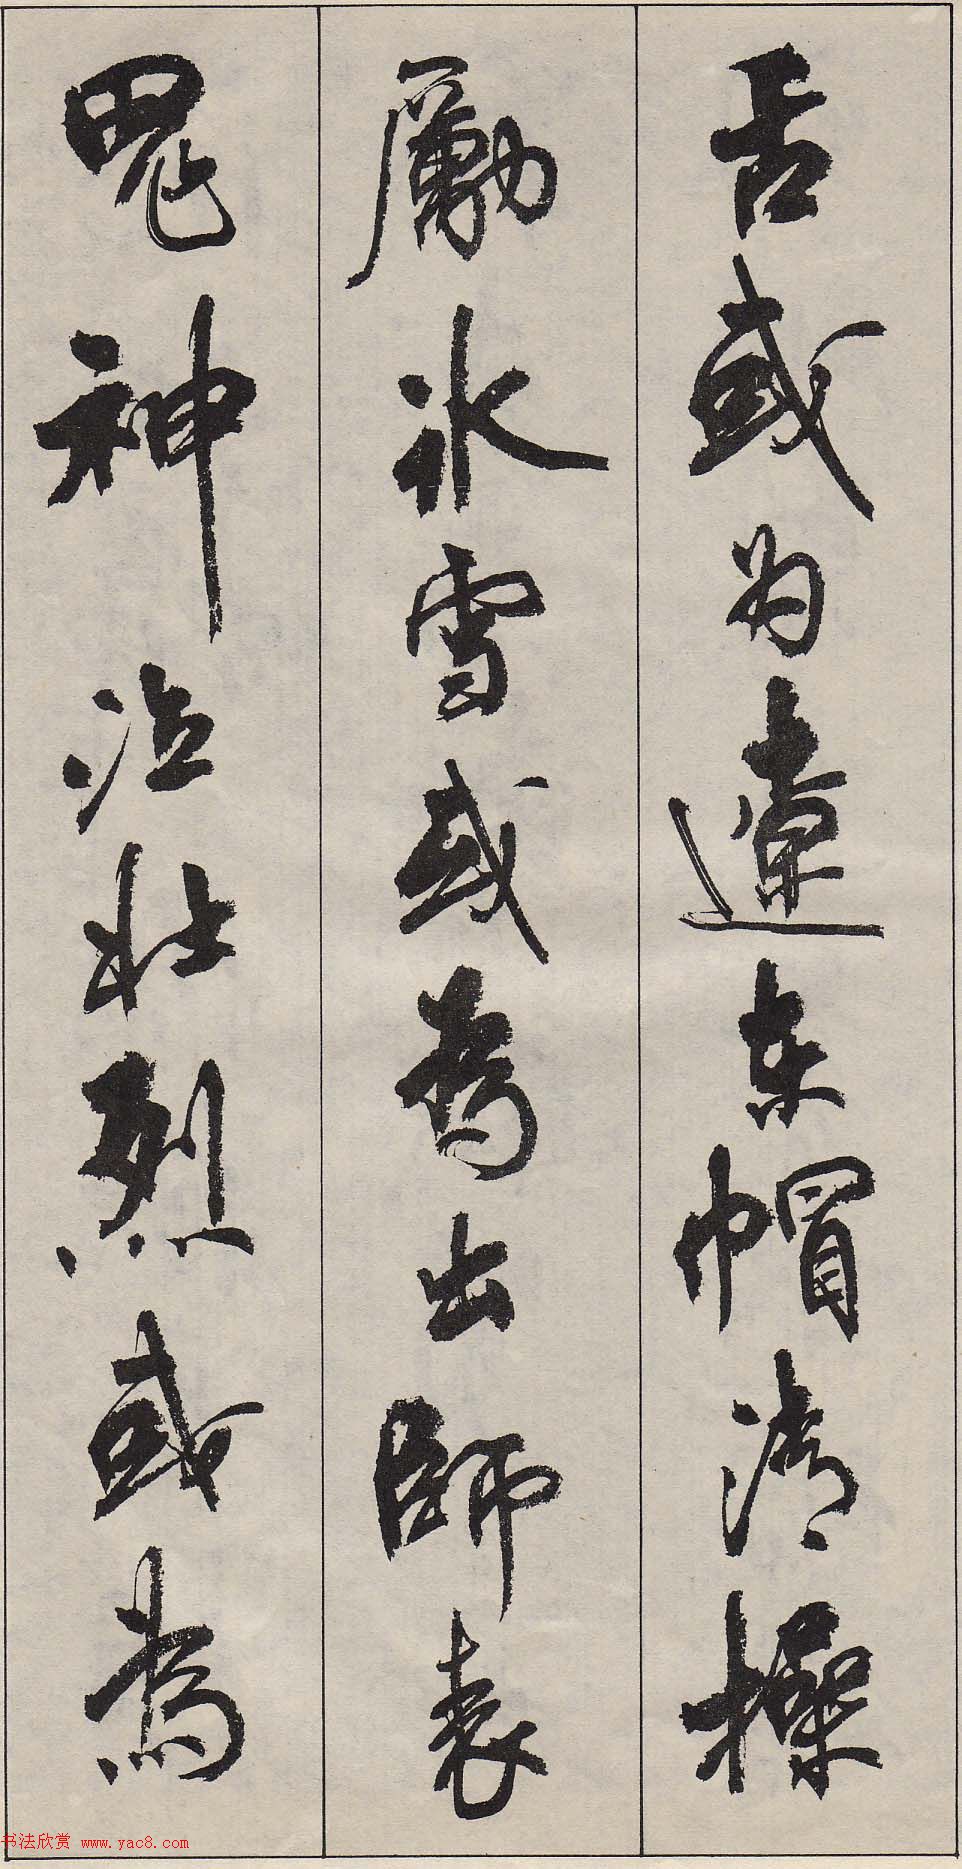 舌或为遼东帽清操
勵冰雪或为出師表
鬼神泣壯烈或為
书法欣赏 www.yac8.com